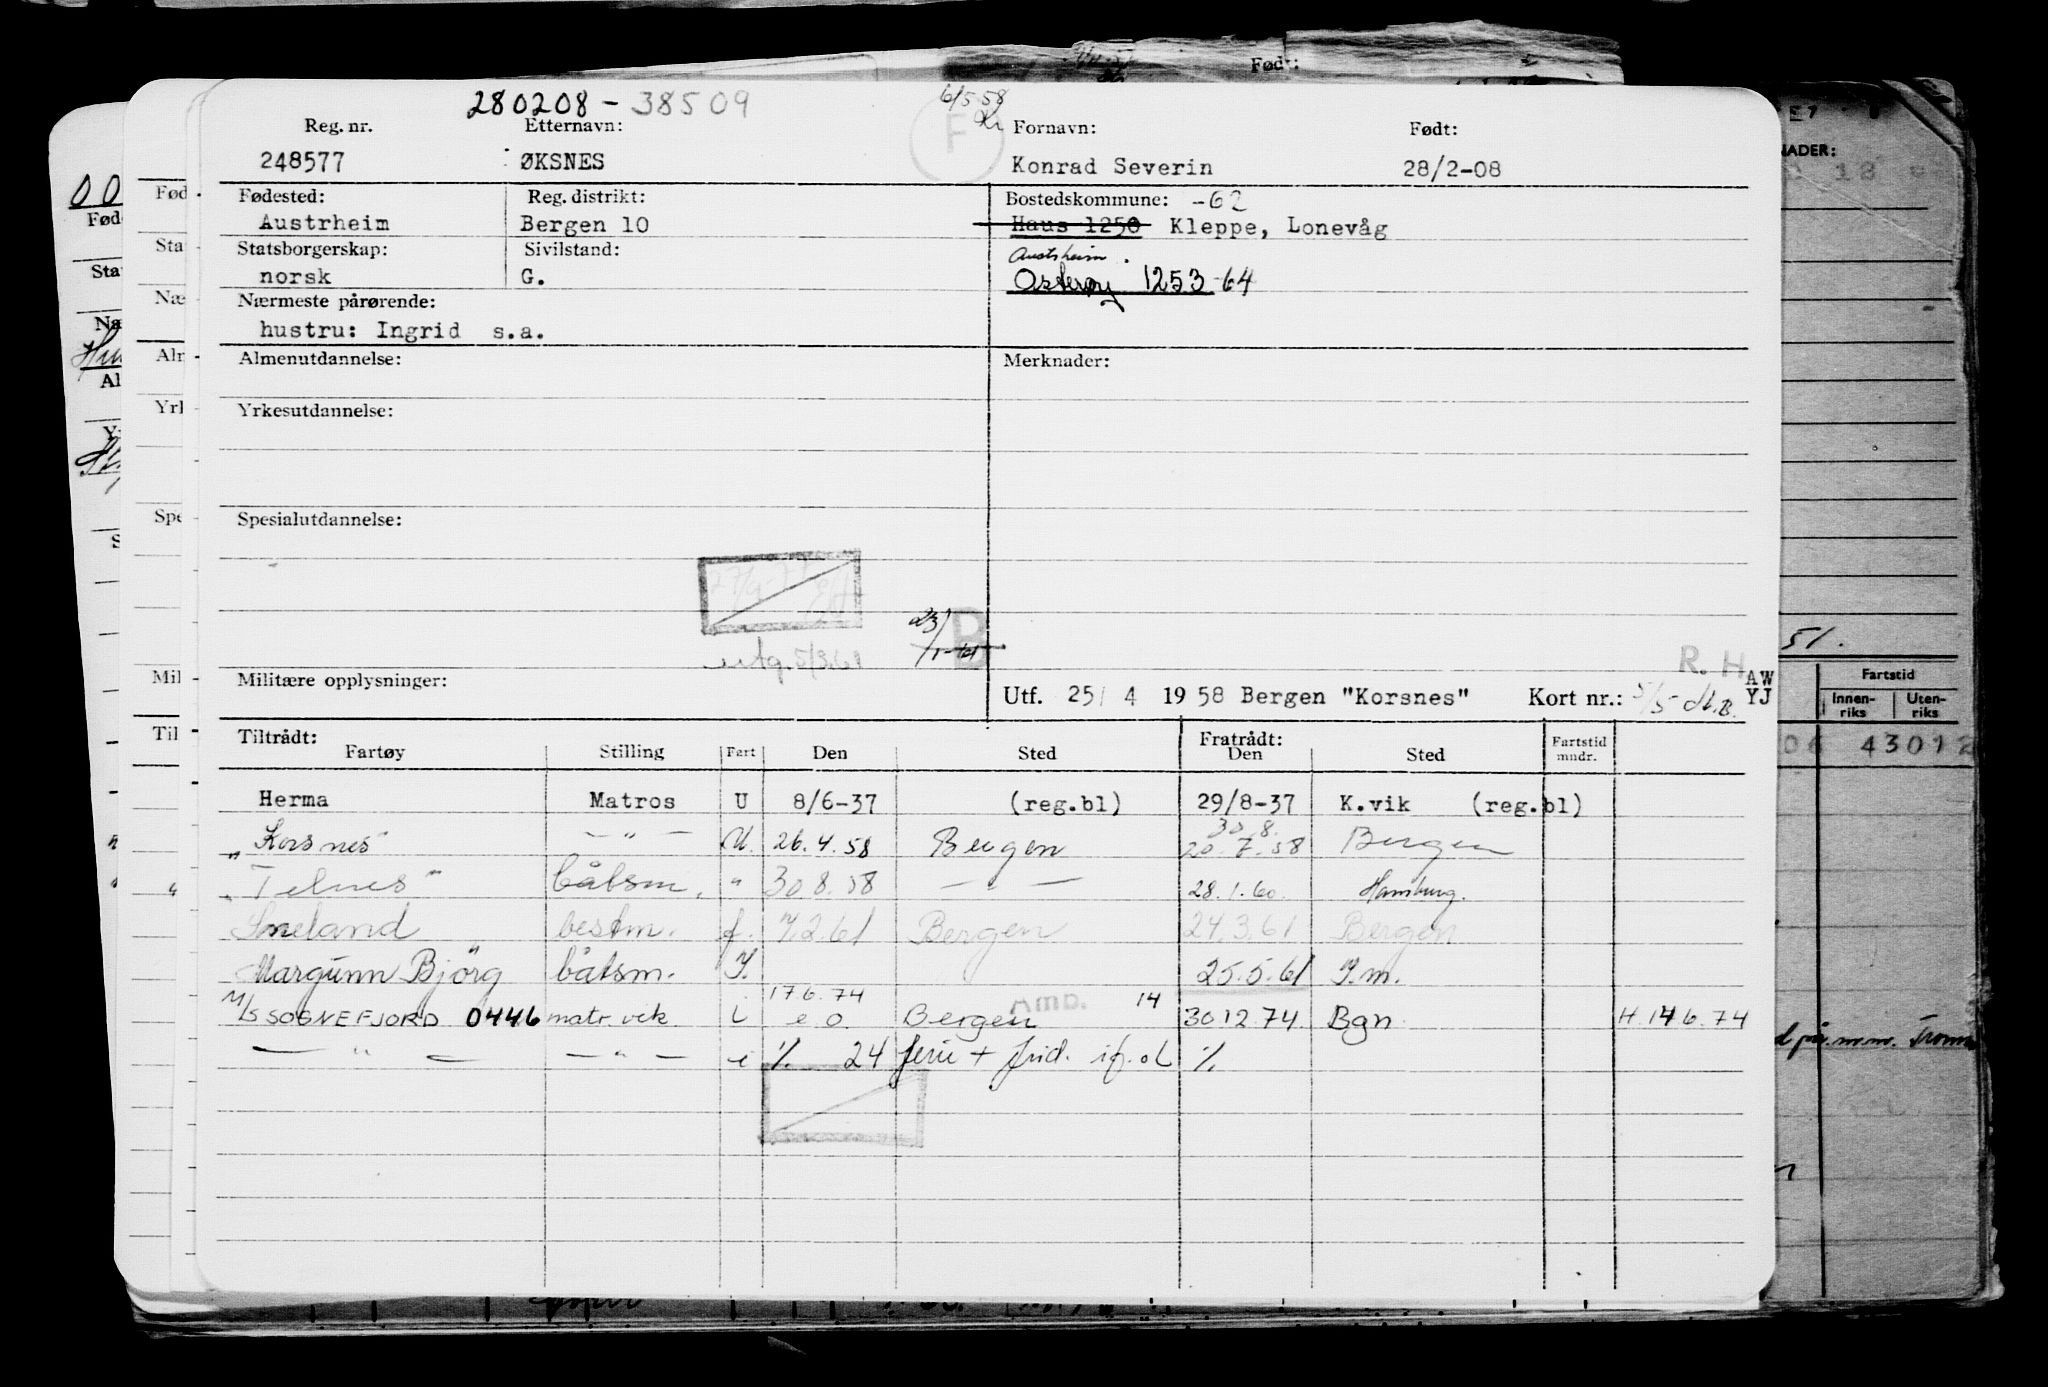 280208-38509
6/5-58
Reg. nr. Etternavn: F Fornavn: Født:
248577 ØKSNES Konrad Severin 28/2-08
Fødested: Reg. distrikt: Bostedskommune: -62
Austrheim Bergen 10 Haus 1250 Kleppe, Lonevåg
Statsborgerskap: Sivilstand: Austrheim.
norsk G. Osterøy 1253-64
Nærmeste pårørende:
hustru: Ingrid s.a.
Almenutdannelse: Merknader:
Yrkesutdannelse:
Spesialutdannelse:
23/1-61 B
utg. 5/3.61
R. H AW
Militære opplysninger: Utf. 25/ 4 1958 Bergen "Korsnes" Kort nr.: 5/5- YJ
Tiltrådt: Fratrådt:
Fartøy Stilling Fart Den Sted Den Sted Fartstid mndr.
Herma Matros U 8/6-37 (reg.bl) 29/8-37 K.vik (reg.bl)
30.8.
"Korsnes" — " — U. 26.4.58 Bergen 20.7.58 Bergen
"Telnes" båtsm. " 30.8.58 — " — 28.1.60. Hamburg.
Sneland bestm. f. 7.2.61 Bergen 24.3.61 Bergen
Margunn Bjørg båtsm. I. 25.5.61 I.m.
17 6. 74 Amb. 14
M/S SOGNEFJORD 0446 matr. vik. i e.o. Bergen 30 12.74 Bgn. H. 14 6.74
— " — — " — i %. 24 ferie + frid. if. ol %.
Født:
NADER:
51.
Fartstid
Innen-riks Uten-riks
06 43012